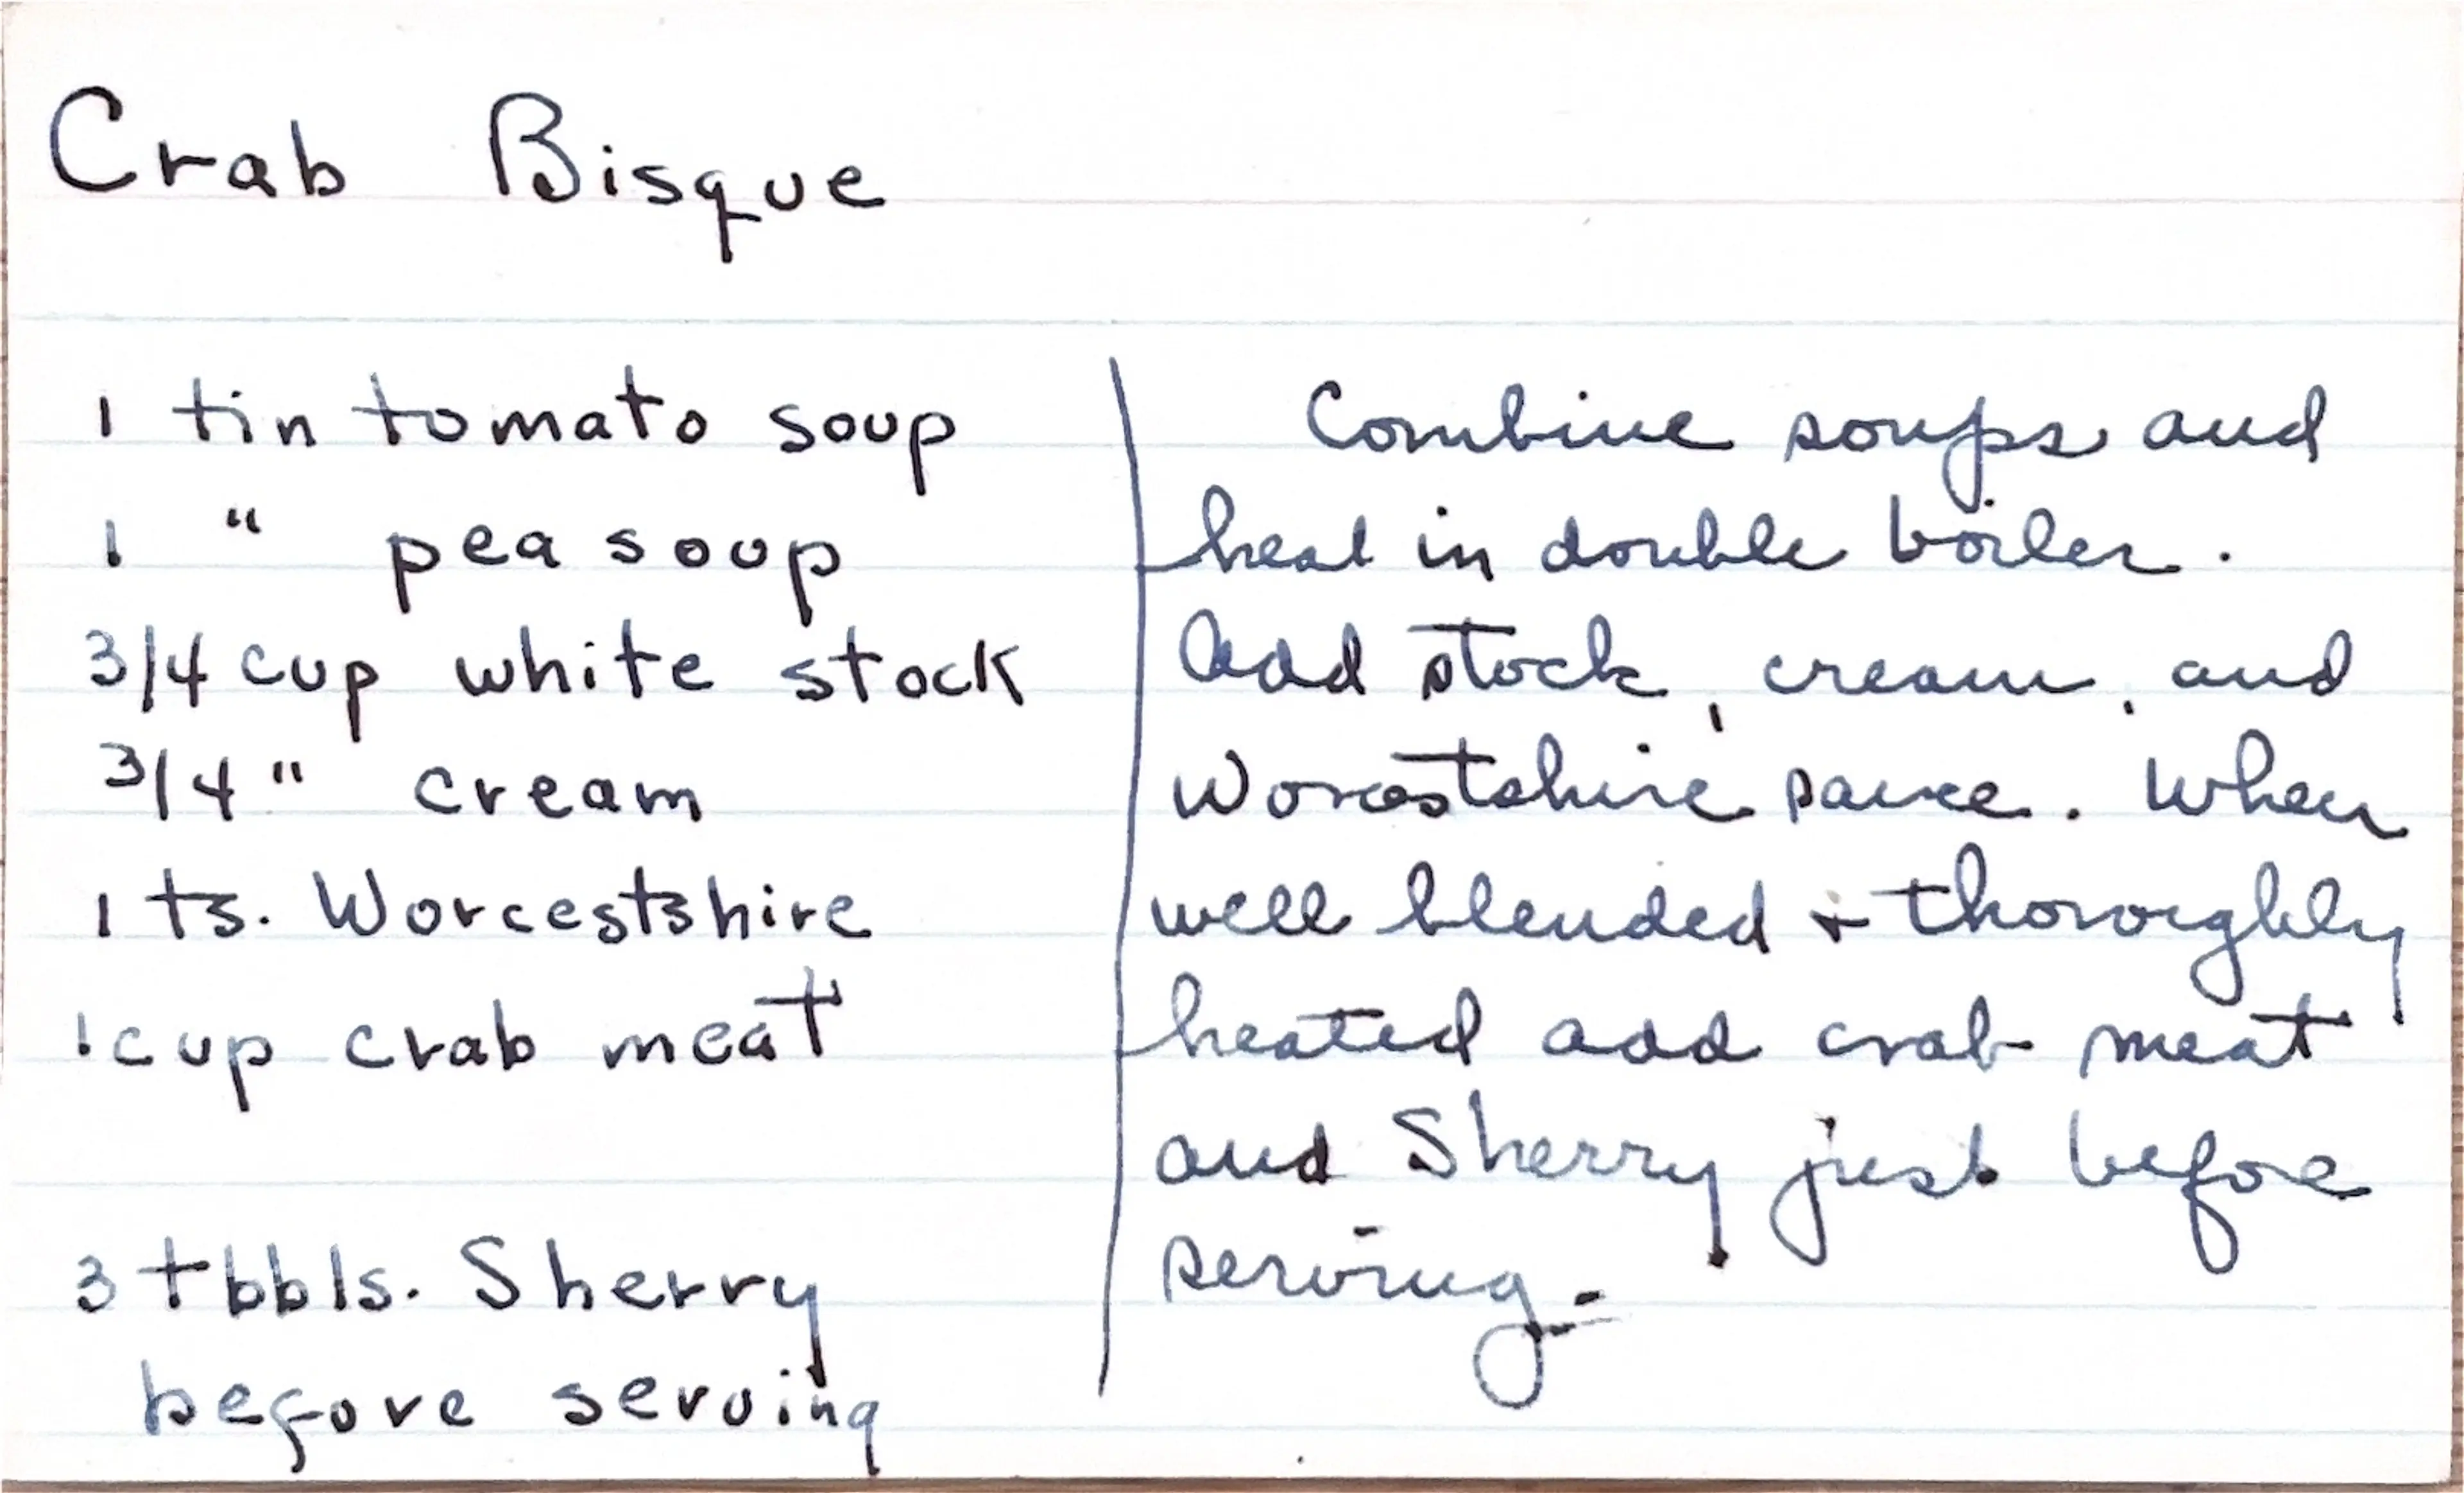 Crab Bisque
1 tin tomato soup
1 " pea soup
3/4 cup white stock
3/4 " cream
1 ts. Worcestshire
1 cup crab meat
3 tbbls. Sherry
before serving
Combine soups and
heat in double boiler.
Add stock, cream, and
Worcestshire sauce. When
well blended + thoroughly
heated add crab meat
and Sherry just before
serving.